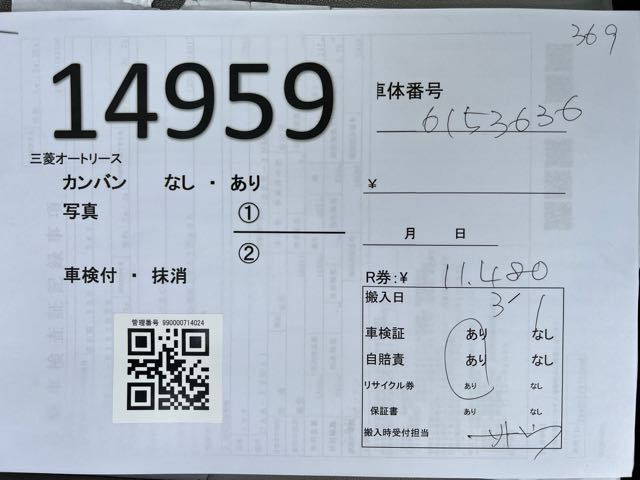 369
14959
車体番号
6153636
三菱オートリース
カンバン なし ・ あり
¥
写真 ①
②
月 日
車検付 ・ 抹消
R券:¥ 11.480
搬入日 3/1
管理番号 990000714024
車検証 あり なし
自賠責 あり なし
リサイクル券 あり なし
保証書 あり なし
搬入時受付担当